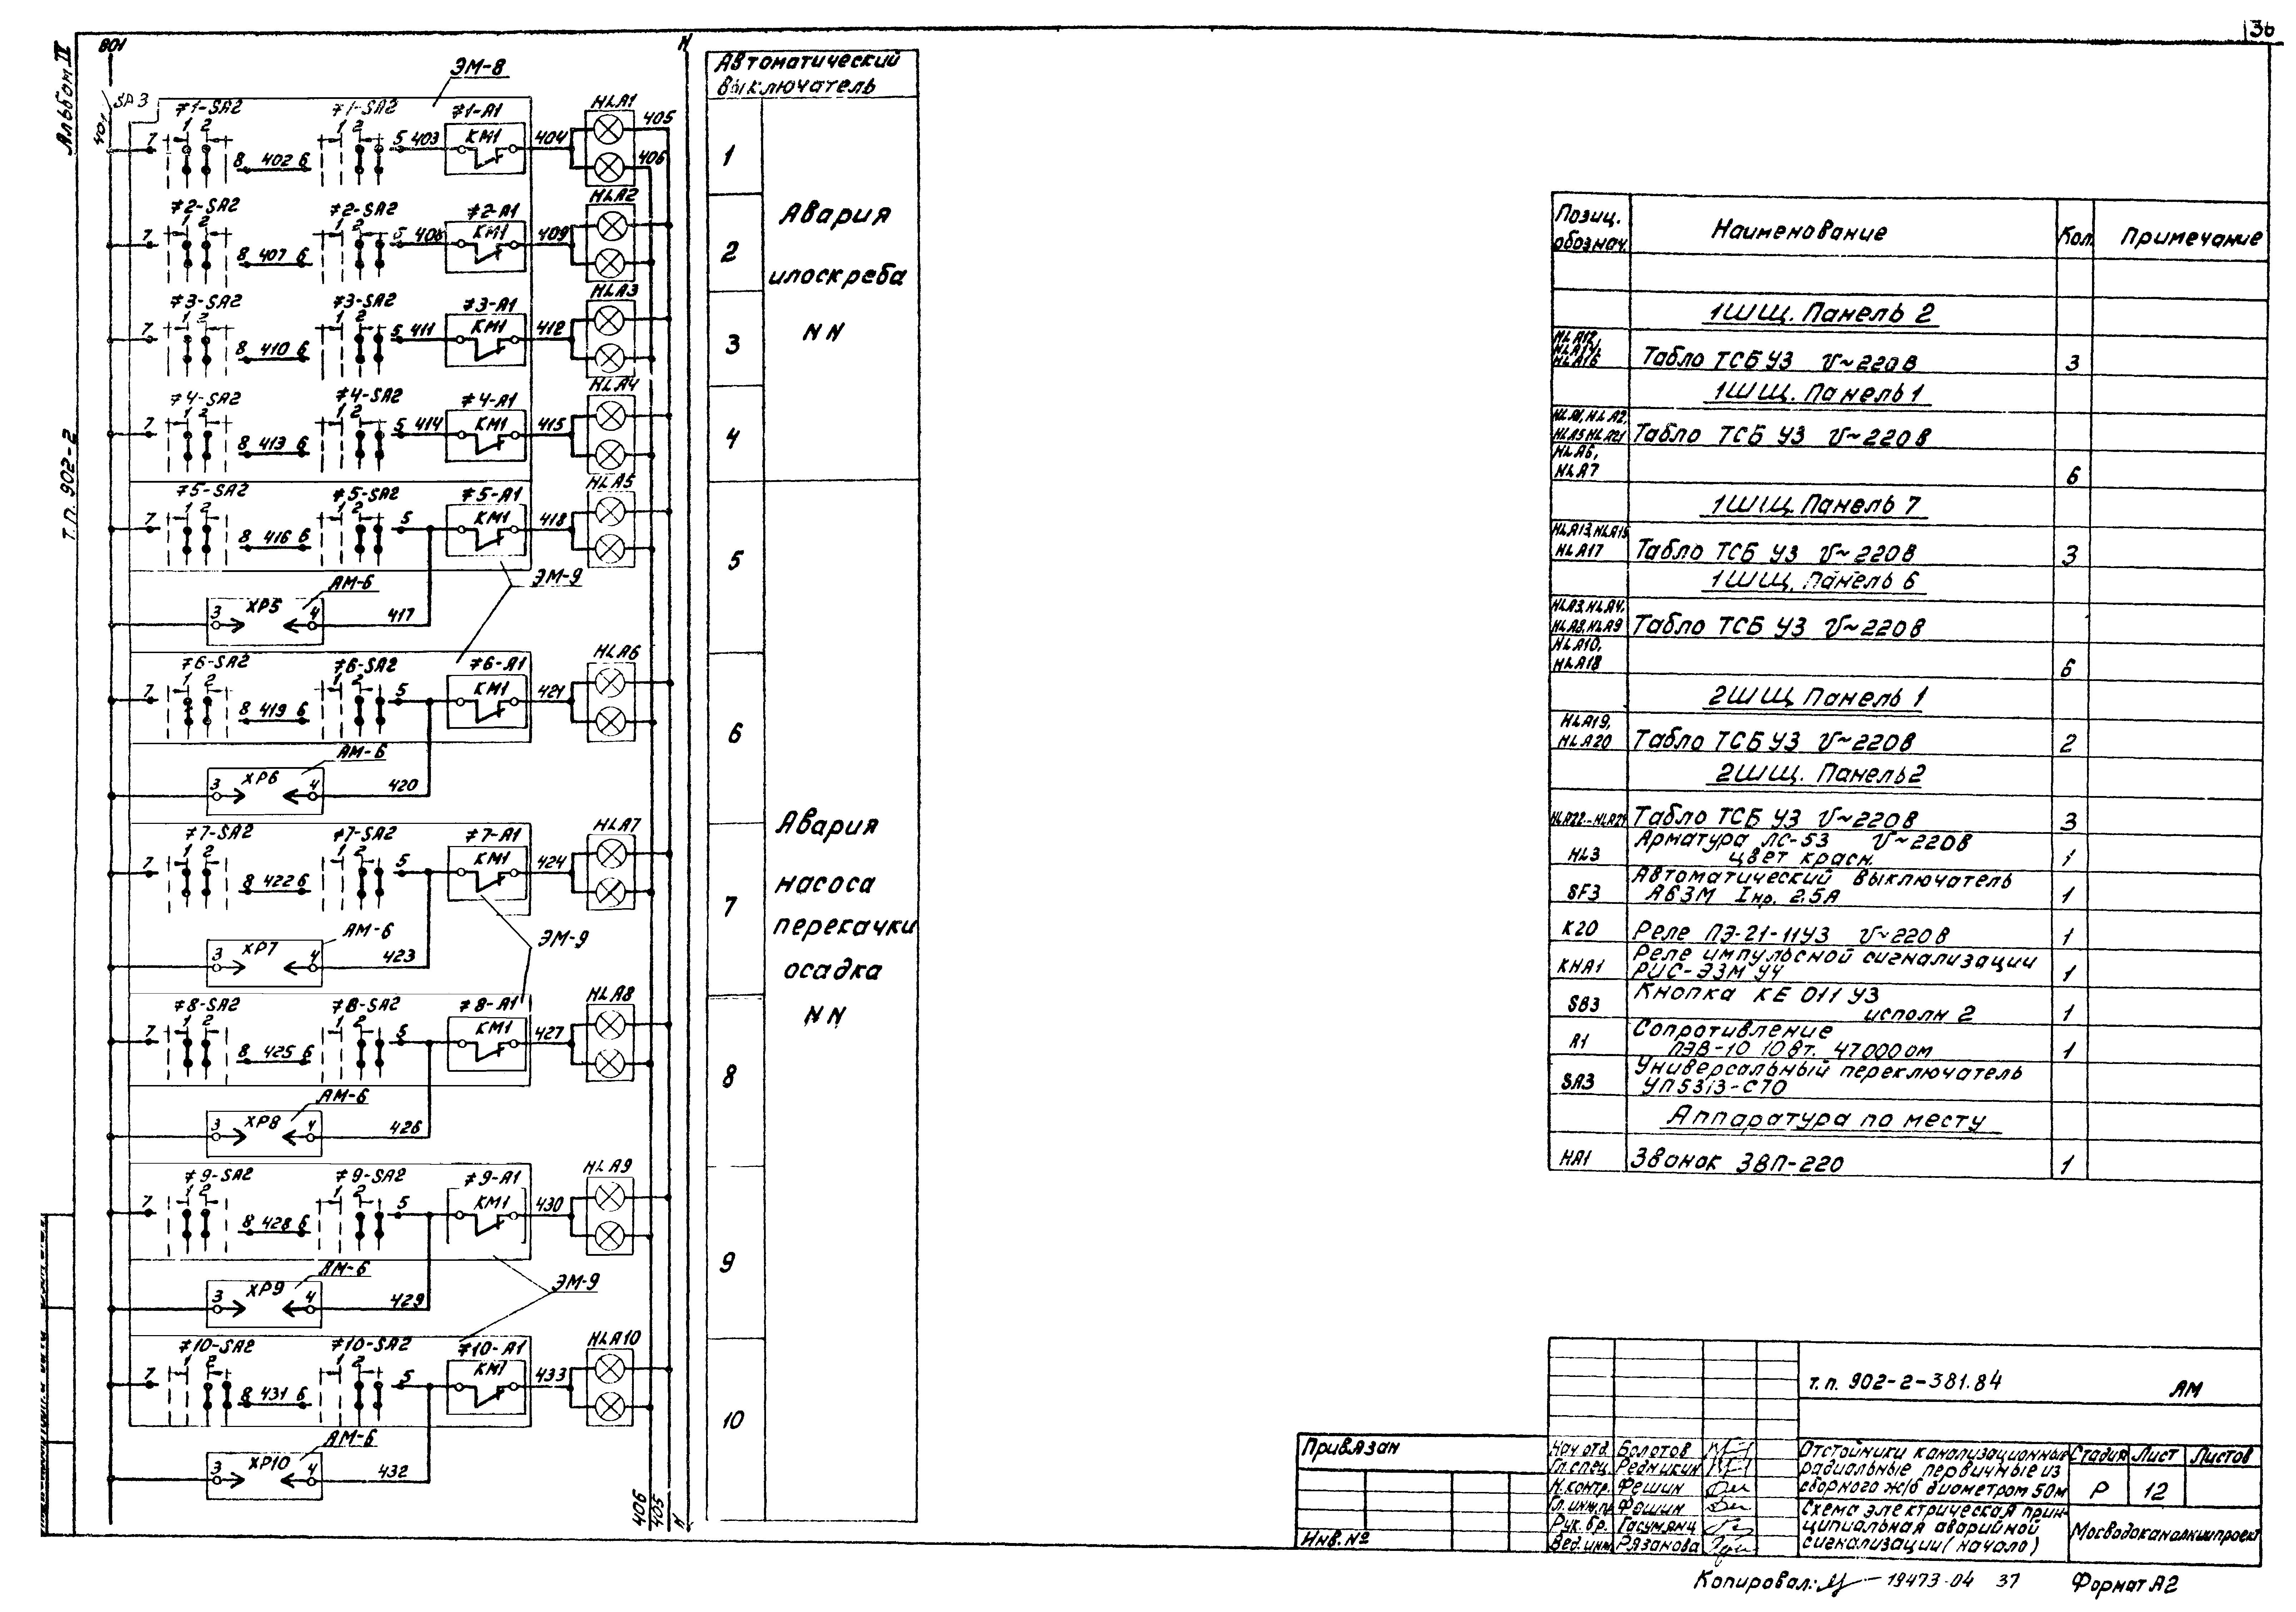 36
Альбом II
Т.П. 902-2
801
N
SF3
401
ЭМ-8
Автоматический
выключатель
≠1-SA2 ≠1-SA2 ≠1-A1 HLA1
1 2 1 2
7 8 402 6 5 403 KM1 404 405
406
1
≠2-SA2 ≠2-SA2 ≠2-A1 HLA2
1 2 1 2
7 8 407 6 5 408 KM1 409
2
Авария
илоскреба
NN
≠3-SA2 ≠3-SA2 ≠3-A1 HLA3
1 2 1 2
7 8 410 6 5 411 KM1 412
3
≠4-SA2 ≠4-SA2 ≠4-A1 HLA4
1 2 1 2
7 8 413 6 5 414 KM1 415
4
≠5-SA2 ≠5-SA2 ≠5-A1 HLA5
1 2 1 2
7 8 416 6 5 KM1 418
5
АМ-6 ЭМ-9
3 XP5 4 417
≠6-SA2 ≠6-SA2 ≠6-A1 HLA6
1 2 1 2
7 8 419 6 5 KM1 421
6
АМ-6
3 XP6 4 420
≠7-SA2 ≠7-SA2 ≠7-A1 HLA7
1 2 1 2
7 8 422 6 5 KM1 424
7
Авария
насоса
перекачки
осадка
NN
АМ-6 ЭМ-9
3 XP7 4 423
≠8-SA2 ≠8-SA2 ≠8-A1 HLA8
1 2 1 2
7 8 425 6 5 KM1 427
8
АМ-6
3 XP8 4 426
≠9-SA2 ≠9-SA2 ≠9-A1 HLA9
1 2 1 2
7 8 428 6 5 KM1 430
9
АМ-6 ЭМ-9
3 XP9 4 429
≠10-SA2 ≠10-SA2 ≠10-A1 HLA10
1 2 1 2
7 8 431 6 5 KM1 433
10
АМ-6
3 XP10 4 432
406 405 N
Позиц. обознач. Наименование Кол. Примечание
1ШЩ. Панель 2
HLA12, HLA14, HLA16 Табло ТСБ УЗ V~220В 3
1ШЩ. Панель 1
HLA1, HLA2,
HLA5 HLA21 Табло ТСБ УЗ V~220В
HLA6,
HLA7 6
1ШЩ. Панель 7
HLA13, HLA15
HLA17 Табло ТСБ УЗ V~220В 3
1ШЩ. Панель 6
HLA3, HLA4,
HLA8, HLA9 Табло ТСБ УЗ V~220В
HLA10,
HLA18 6
2ШЩ Панель 1
HLA19,
HLA20 Табло ТСБ УЗ V~220В 2
2ШЩ. Панель 2
HLA22-HLA24 Табло ТСБ УЗ V~220В 3
HL3 Арматура ЛС-53 V~220В
цвет красн. 1
SF3 Автоматический выключатель
А63М Iнр. 2.5А 1
K20 Реле ПЭ-21-11УЗ V~220В 1
KHA1 Реле импульсной сигнализации
РИС-ЭЗМ У4 1
SB3 Кнопка КЕ 011 УЗ
исполн 2 1
R1 Сопротивление
ПЭВ-10 10Вт. 47000м 1
SA3 Универсальный переключатель
УП5313-С70
Аппаратура по месту
HA1 Звонок ЗВП-220 1
Т.П. 902-2-381.84 АМ
Привязан
Инв. №
Нач отд. Болотов
Гл. спец. Редникин
Н. контр. Фешин
Гл. инж. пр Фешин
Рук. бр. Гасумянц
Вед. инж Рязанова
Отстойники канализационные
радиальные первичные из
сборного ж/б диаметром 50м
Схема электрическая прин-
ципиальная аварийной
сигнализации (начало)
Стадия Лист Листов
Р 12
Мосводоканалниипроект
Копировал: 19473-04 37 Формат А2